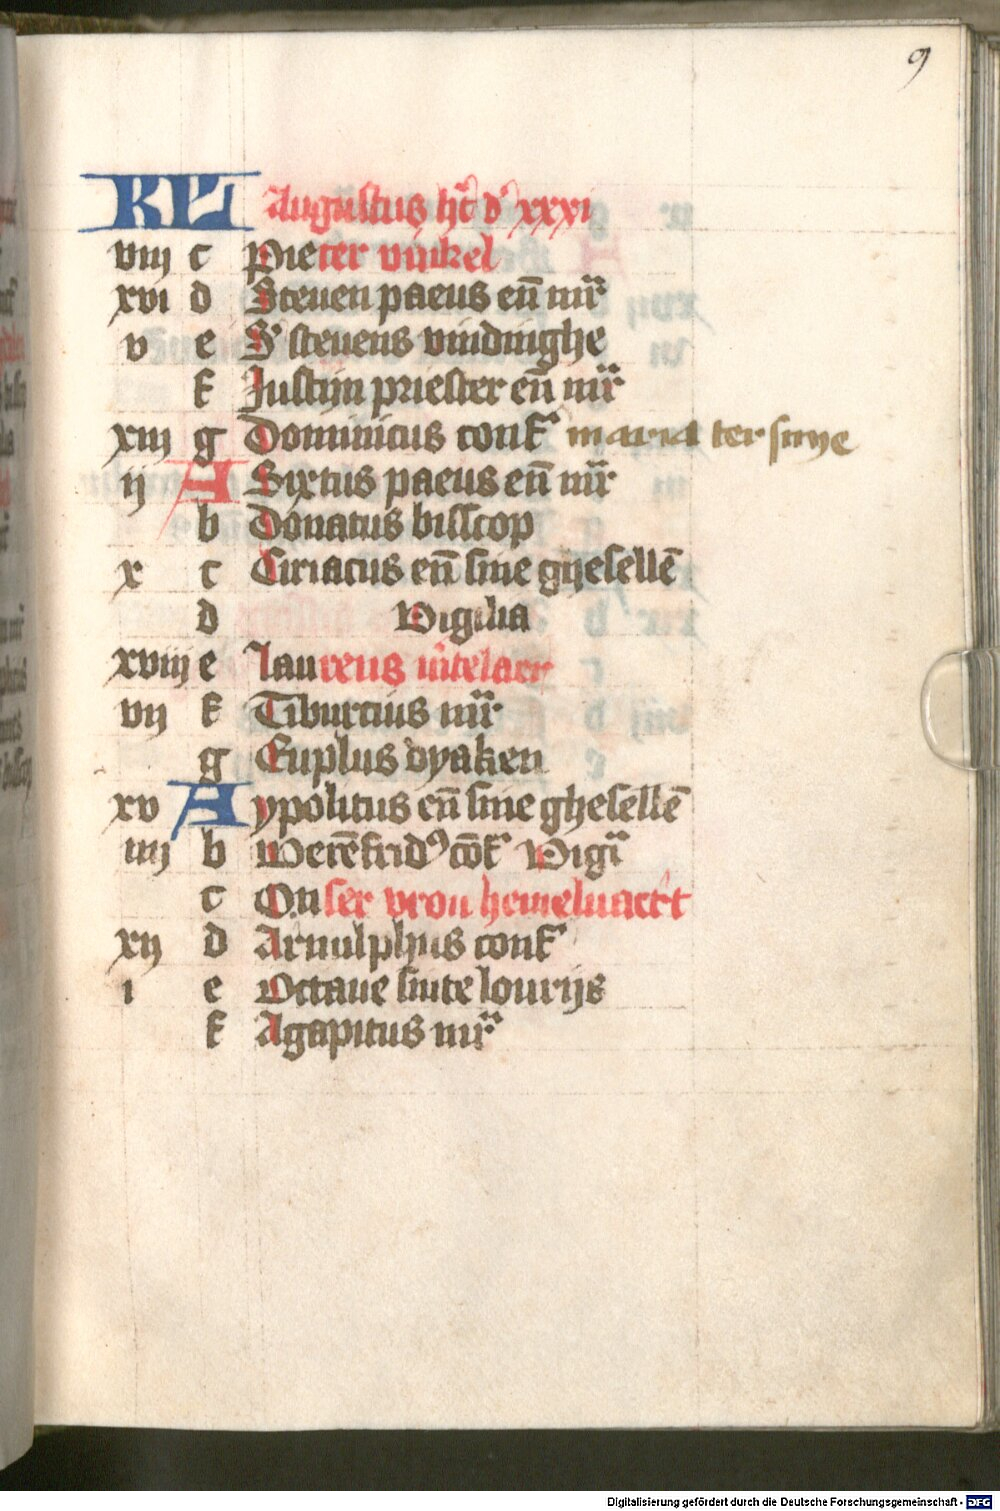 9
KL Augustus ht̄ d' xxxi
viij c Pieter vinkel
xvi d Steuen paeus en̄ mr̄
v e S' steuens vindinghe
f Justijn priester en̄ mr̄
xiij g Dominicus conf' maria ter snye
ij A Sixtus paeus en̄ mr̄
b Donatus bisscop
x c Ciriacus en̄ sine ghesellē
d Vigilia
xviij e Laurens
vij f Tiburcius mr̄
g Euplus dyaken
xv A ypolitus en̄ sine ghesellē
iiij b Werēfrid9 cōf' Vigī
c Onser vrou hemelvaert
xij d Arnulphus conf'
i e Octaue sinte lourijs
f Agapitus mr̄
Digitalisierung gefördert durch die Deutsche Forschungsgemeinschaft - DFG